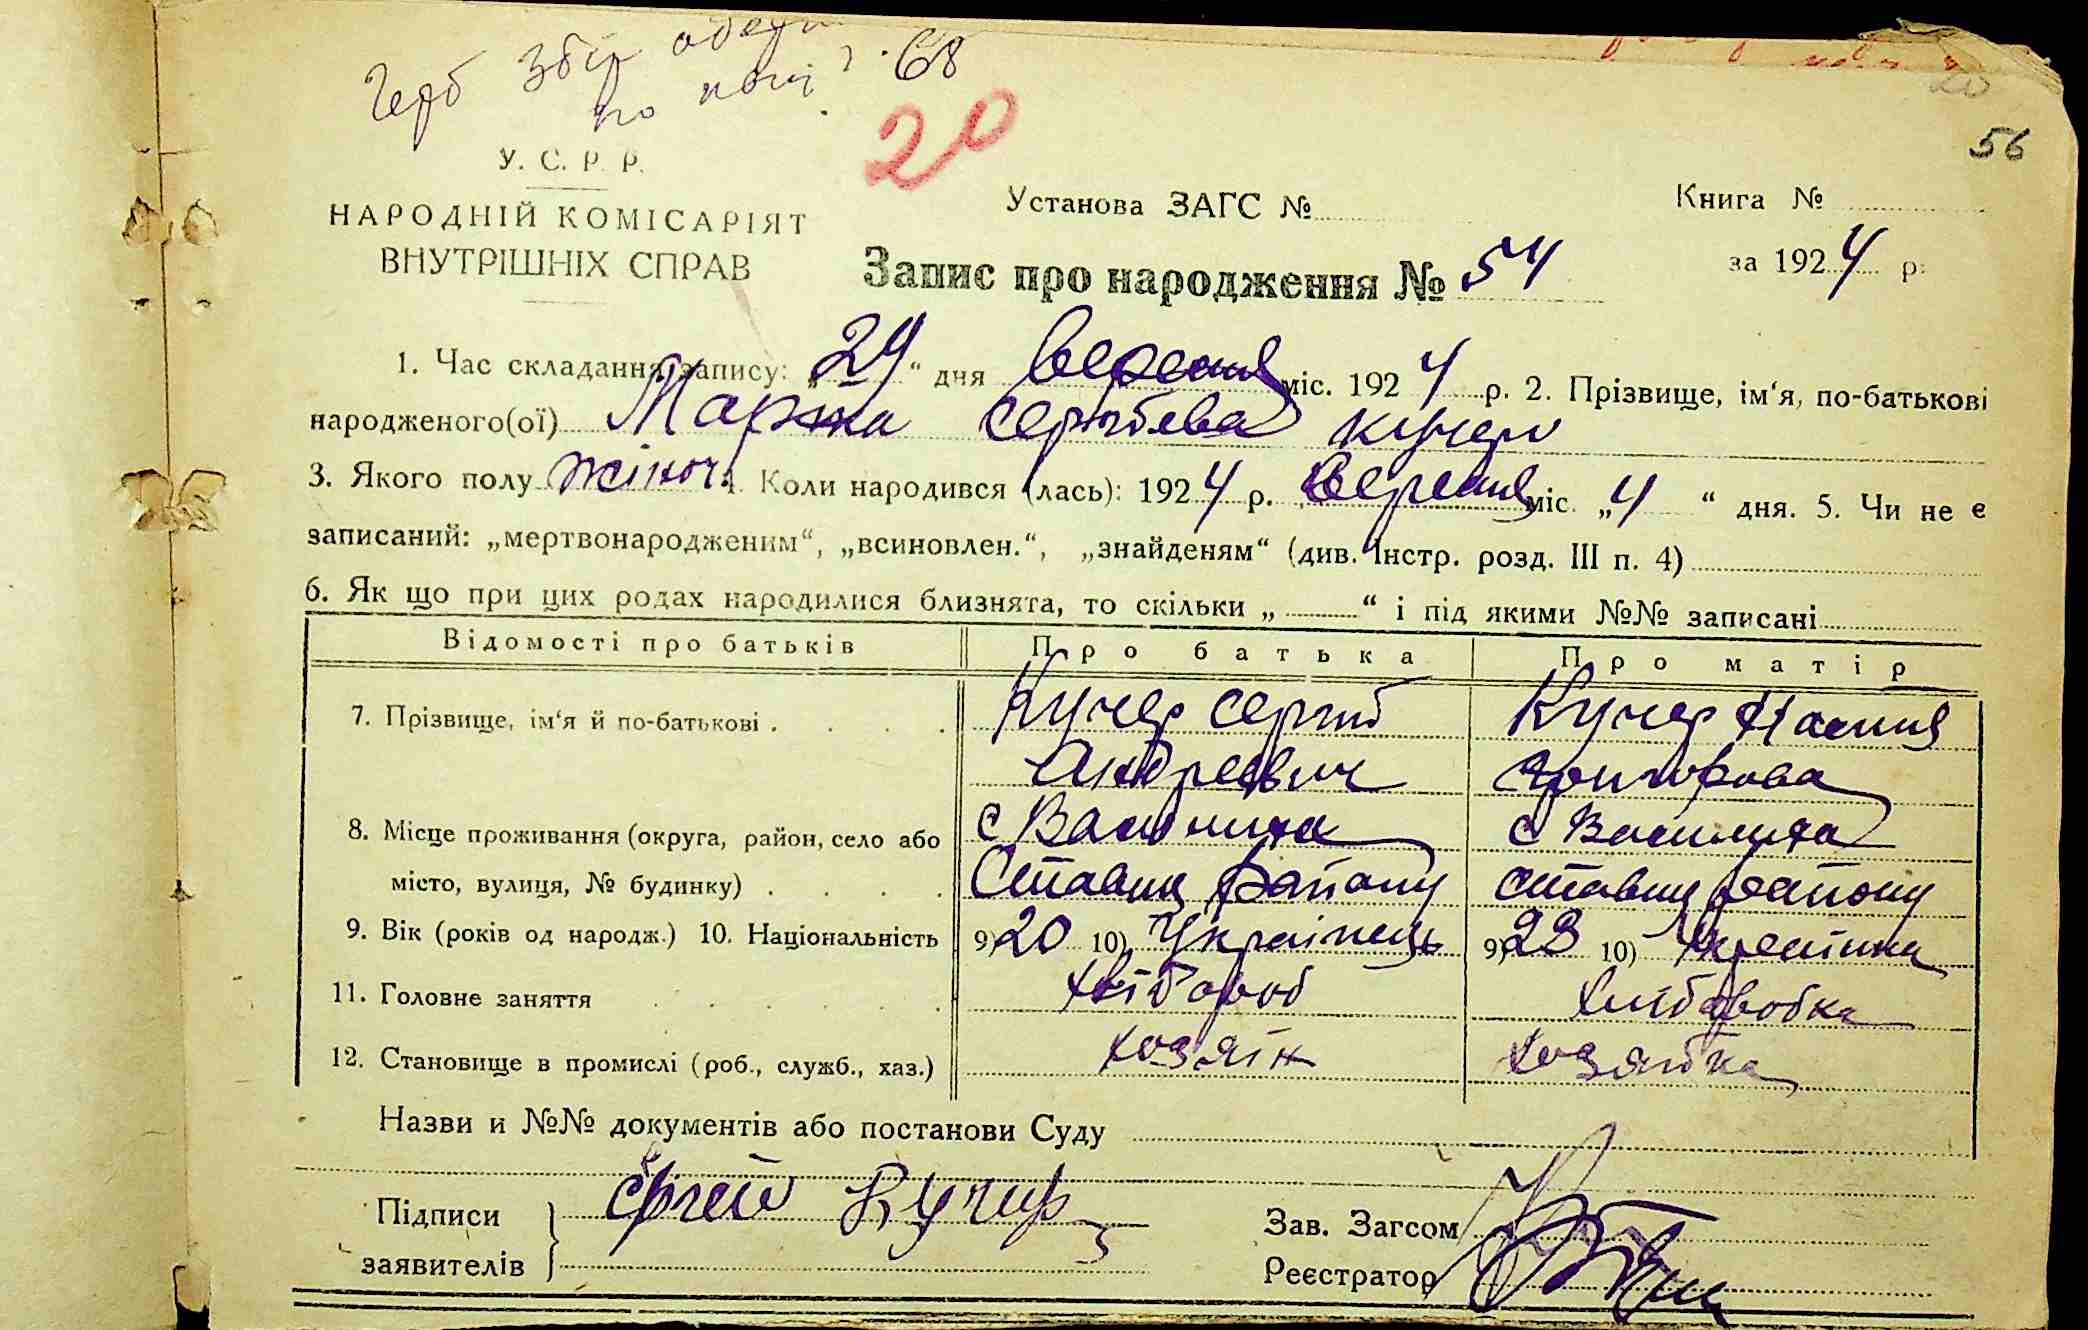 Герб збір
по 68
20
56
У. С. Р. Р.
НАРОДНІЙ КОМІСАРІЯТ
ВНУТРІШНІХ СПРАВ
Установа ЗАГС №
Книга №
за 1924 р.
Запис про народження № 54
1. Час складання запису: „24“ дня вересня міс. 1924 р. 2. Прізвище, ім‘я, по-батькові
народженого(ої) Сергѣева Кучер
3. Якого полу жіноч. 4. Коли народився (лась): 1924 р. вересня міс. „4“ дня. 5. Чи не є
записаний: „мертвонародженим“, „всиновлен.“, „знайденям“ (див. Інстр. розд. III п. 4)
6. Як що при цих родах народилися близнята, то скільки „ “ і під якими №№ записані
Відомості про батьків Про батька Про матір
7. Прізвище, ім‘я й по-батькові . Кучер Сергий Кучер Настия
Андреевич Григорова
8. Місце проживання (округа, район, село або с Василиха с Василиха
місто, вулиця, № будинку) . Ставищ району Ставищ району
9. Вік (років од народж.) 10. Національність 9) 20 10) Українець 9) 23 10) Українка
11. Головне заняття хлібороб хліборобка
12. Становище в промислі (роб., служб., хаз.) хозяїн хозяйка
Назви и №№ документів або постанови Суду
Підписи Сргей Кучир
заявителів
Зав. Загсом
Реєстратор